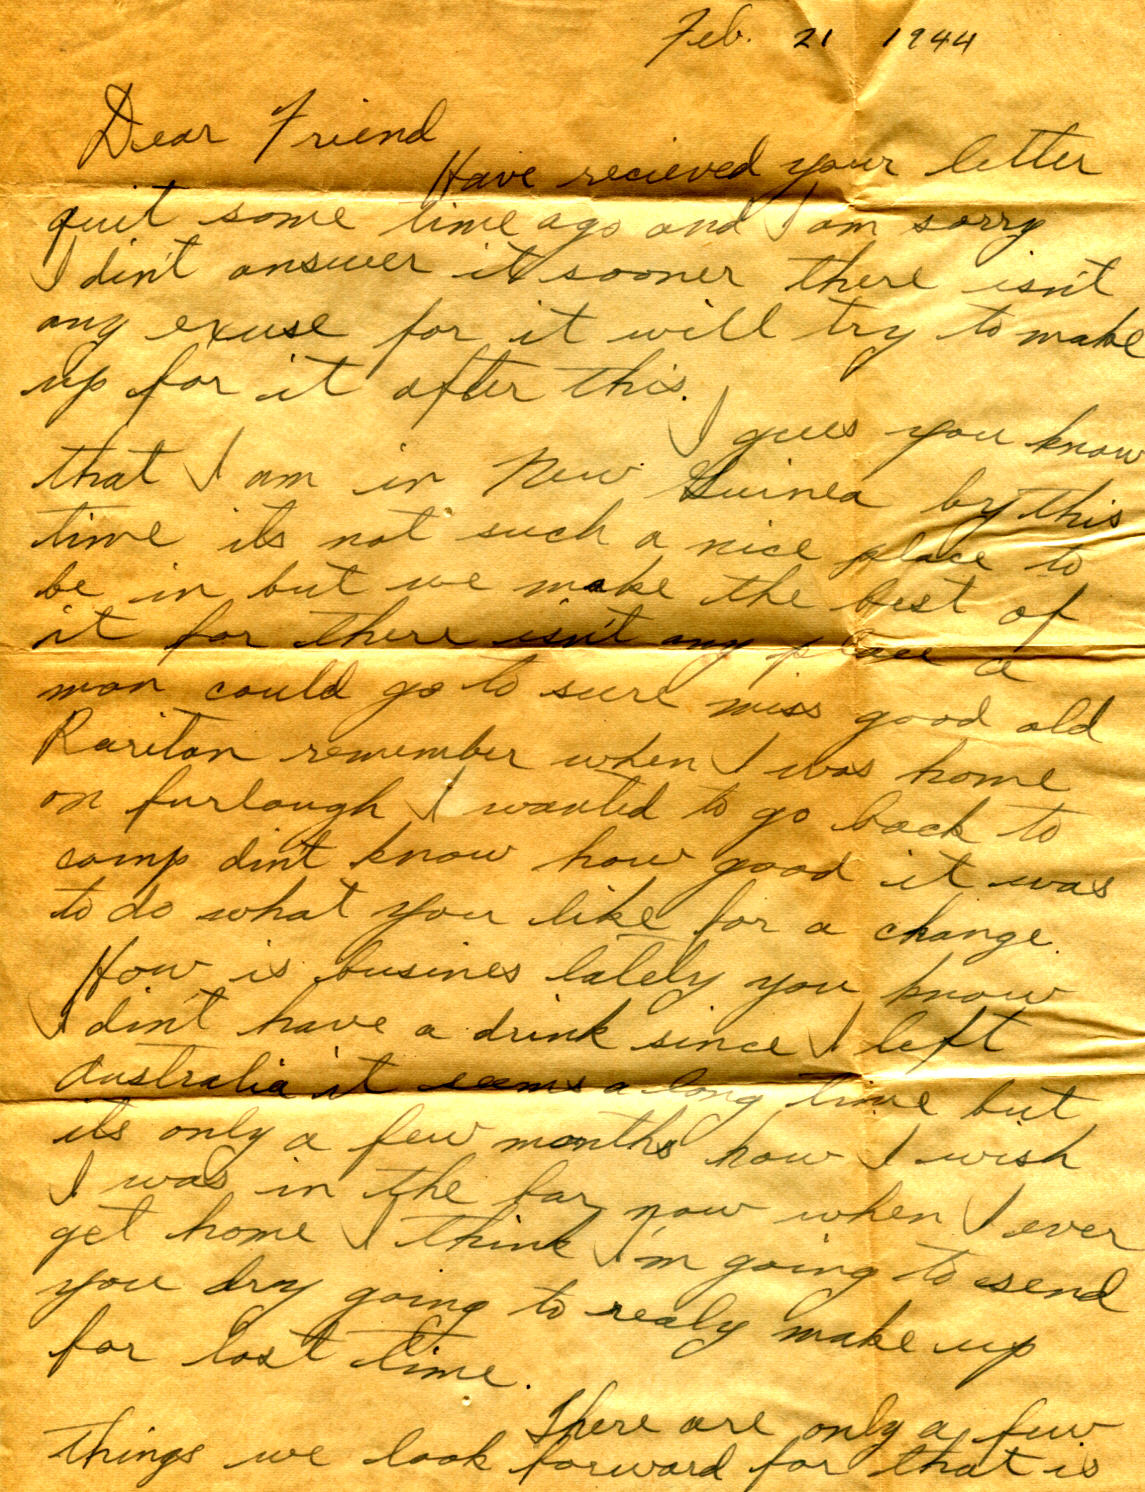 Feb. 21 1944
Dear Friend
Have recieved your letter
quit some time ago and I am sorry
I din't answer it sooner there isn't
any exuse for it will try to make
up for it after this.
I gues you know
that I am in New Guinea by this
time its not such a nice place to
be in but we make the best of
it for there isn't any place a
man could go to sure miss good old
Raritan remember when I was home
on furlough I wanted to go back to
camp dint know how good it was
to do what you like for a change.
How is busines lately you know
I din't have a drink since I left
Australia it seems a long time but
its only a few months how I wish
I was in the bar now when I ever
get home I think I'm going to send
you dry going to realy make up
for lost time.
There are only a few
things we look forward for that is